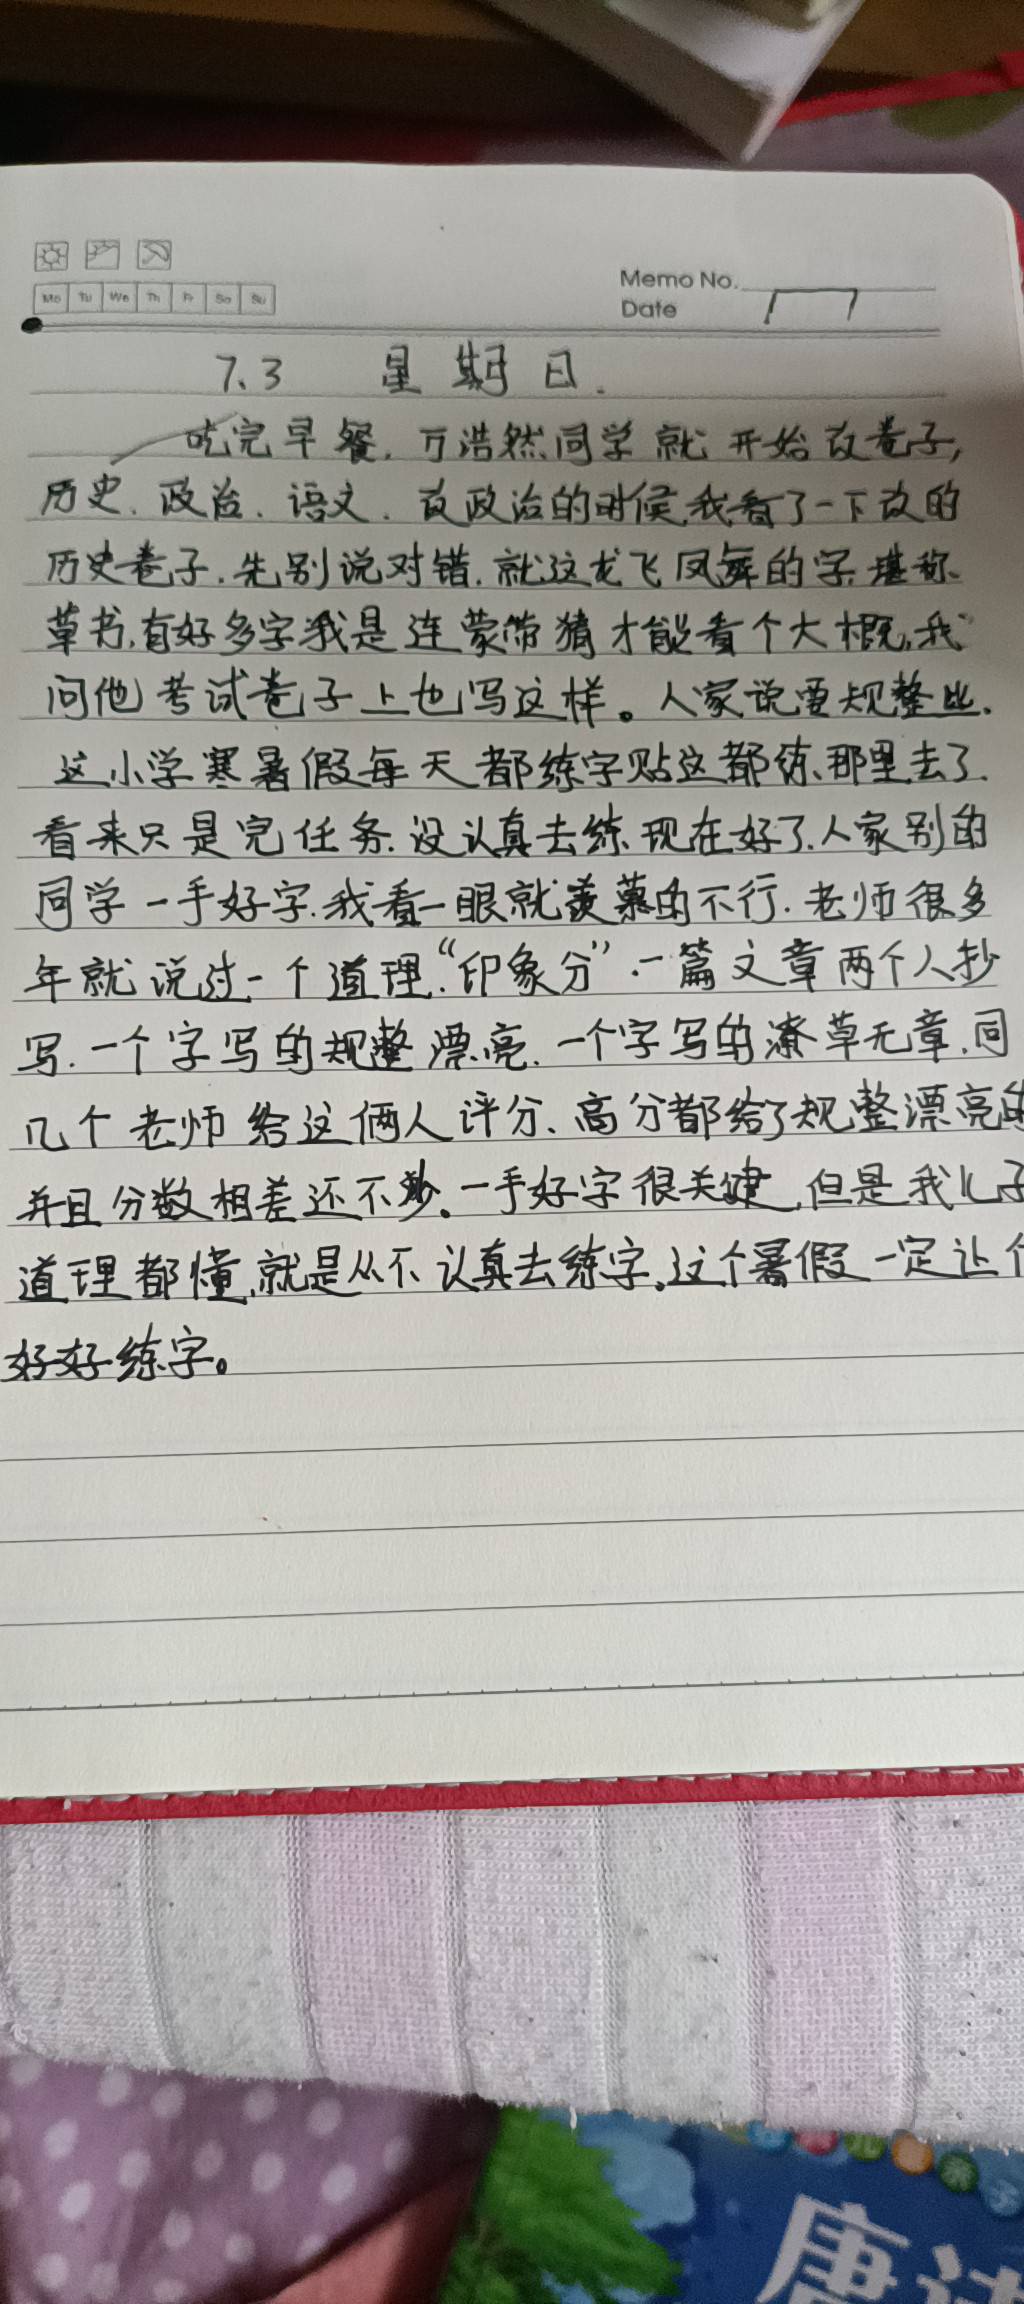 Mo Tu We Th Fr Sa Su
Memo No.
Date
7.3 星期日.
吃完早餐,万浩然同学就开始改卷子,
历史、政治、语文.改政治的时候,我看了一下改的
历史卷子.先别说对错.就这龙飞凤舞的字.堪称
草书,有好多字我是连蒙带猜才能看个大概,我
问他考试卷子上也写这样。人家说要规整些.
这小学寒暑假每天都练字贴这都练那里去了.
看来只是完任务.没认真去练.现在好了.人家别的
同学一手好字.我看一眼就羡慕的不行.老师很多
年就说过一个道理.“印象分”.一篇文章两个人抄
写.一个字写的规整漂亮.一个字写的潦草无章.同
几个老师给这俩人评分、高分都给了规整漂亮的
并且分数相差还不少。一手好字很关键,但是我儿子
道理都懂,就是从不认真去练字。这个暑假一定让
好好练字。
唐诗